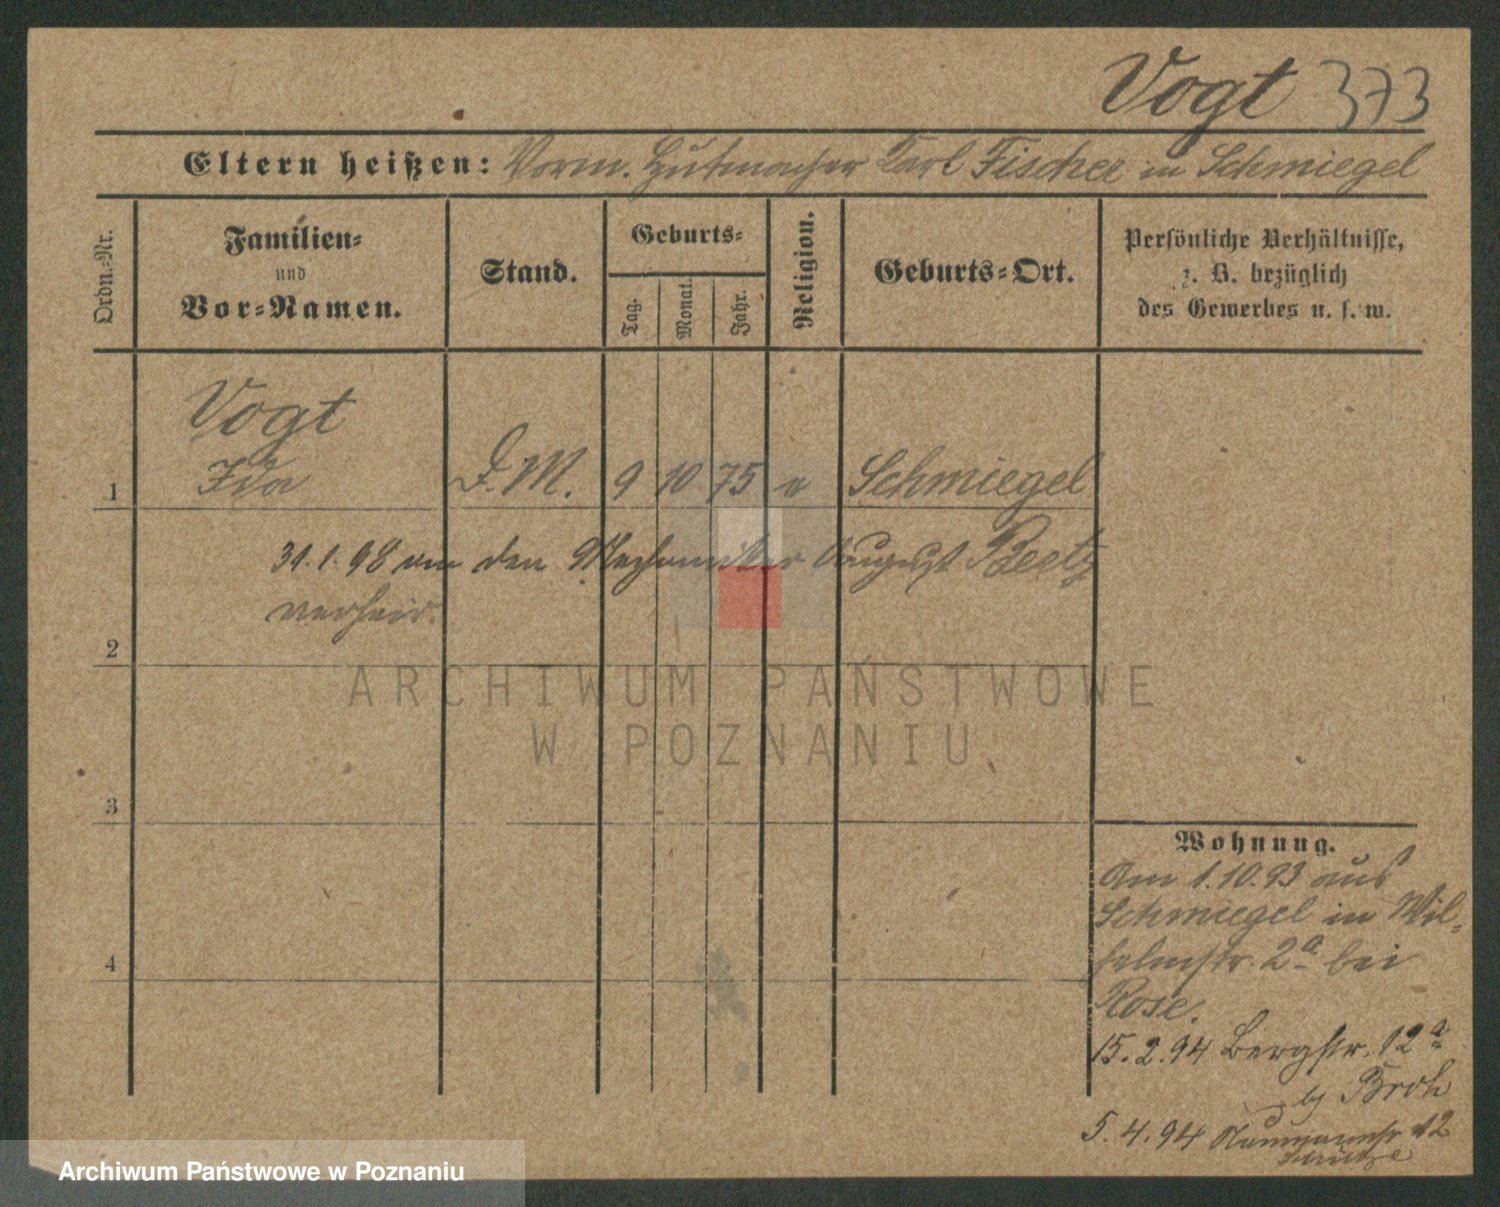 Vogt 373
Eltern heißen: Vorm. Hutmacher Carl Fischer in Schmiegel
Ordn.-Nr.
Familien-
und
Vor-Namen.
Stand.
Geburts-
Tag.
Monat.
Jahr.
Religion.
Geburts-Ort.
Persönliche Verhältnisse,
z. B. bezüglich
des Gewerbes u. s. w.
Vogt
1 Ida D. M. 9 10 75 e Schmiegel
31.1.98 an den Mechaniker August Beetz
verheir.
2
3
4
Wohnung.
Am 1.10.93 aus
Schmiegel in Wil-
helmstr. 2a bei
Rose.
15.2.94 Bergstr. 12a
b/ Broh
5.4.94 Naumannstr 12
Schulze
ARCHIWUM PAŃSTWOWE
W POZNANIU
Archiwum Państwowe w Poznaniu